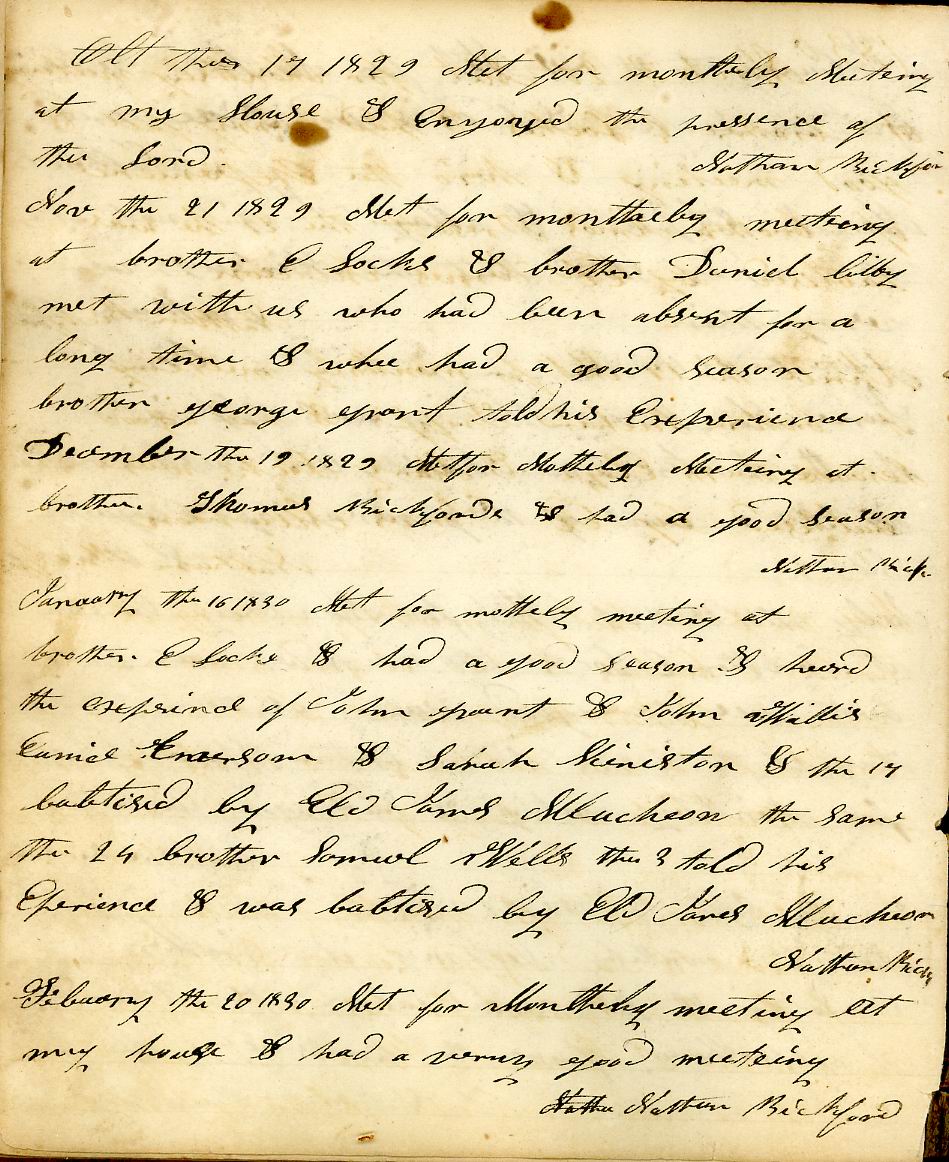 Oct the 17 1829 Met for monthely Meeting
at my House & Enyoyed the pressence of
the Lord. Nathan Bickfor
Nov the 21 1829 Met for monthelby meeting
at brother E Locks & brother Daniel
met with us who had been absent for a
long time & whee had a good season
brother george grant told his Experience
December the 19 1829 Met for Mothely Meeting at
brother Thomas Bickfords & had a good season
Nathan Bick
January the 16 1830 Met for mothely meeting at
brother E Locke & had a good season & heard
the exprince of John grant & John Willis
Eunice Emersom & Sarah Kiniston & the 17
babtised by Eld James Mucheon the same
the 24 brother Samuel Wells the 3 told his
Eperience & was babtised by Eld James Mucheon
Nathan Bick
Febuary the 20 1830 Met for Monthely meeting at
my house & had a verry good meeting
Natha Nathan Bickford